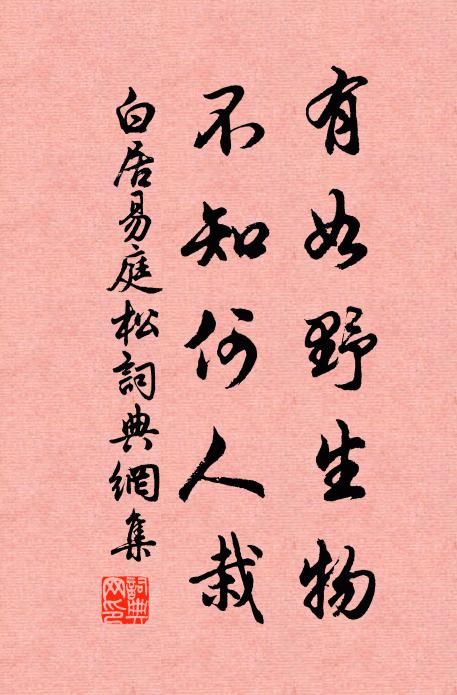 有如野生物
不知何人栽
白居易庭松詞典網集
詞典网印